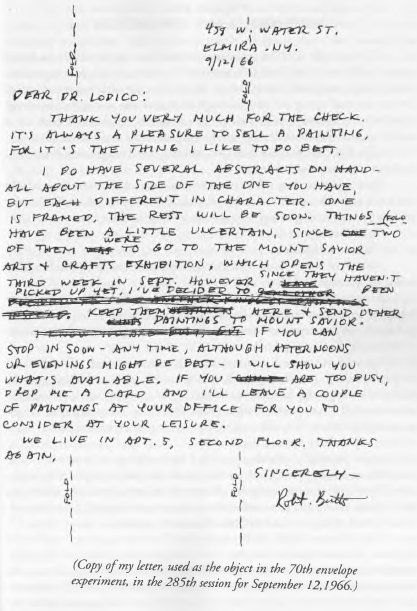 458 W. WATER ST.
ELMIRA. NY.
9/12/66
FOLD
FOLD
DEAR DR. LODICO:
THANK YOU VERY MUCH FOR THE CHECK.
IT'S ALWAYS A PLEASURE TO SELL A PAINTING,
FOR IT'S THE THING I LIKE TO DO BEST.
I DO HAVE SEVERAL ABSTRACTS ON HAND-
ALL ABOUT THE SIZE OF THE ONE YOU HAVE,
BUT EACH DIFFERENT IN CHARACTER. ONE
IS FRAMED, THE REST WILL BE SOON. THINGS FOLD
HAVE BEEN A LITTLE UNCERTAIN, SINCE TWO
OF THEM WERE TO GO TO THE MOUNT SAVIOR
ARTS & CRAFTS EXHIBITION, WHICH OPENS THE
THIRD WEEK IN SEPT. HOWEVER SINCE THEY HAVEN'T BEEN
PICKED UP YET, I'VE DECIDED TO
KEEP THEM HERE & SEND OTHER
PAINTINGS TO MOUNT SAVIOR.
IF YOU CAN
STOP IN SOON - ANY TIME, ALTHOUGH AFTERNOONS
OR EVENINGS MIGHT BE BEST - I WILL SHOW YOU
WHAT'S AVAILABLE. IF YOU ARE TOO BUSY,
DROP ME A CARD AND I'LL LEAVE A COUPLE
OF PAINTINGS AT YOUR OFFICE FOR YOU TO
CONSIDER AT YOUR LEISURE.
WE LIVE IN APT. 5, SECOND FLOOR. THANKS
AGAIN,
SINCERELY-
Robt. Butts
FOLD
FOLD
(Copy of my letter, used as the object in the 70th envelope
experiment, in the 285th session for September 12,1966.)